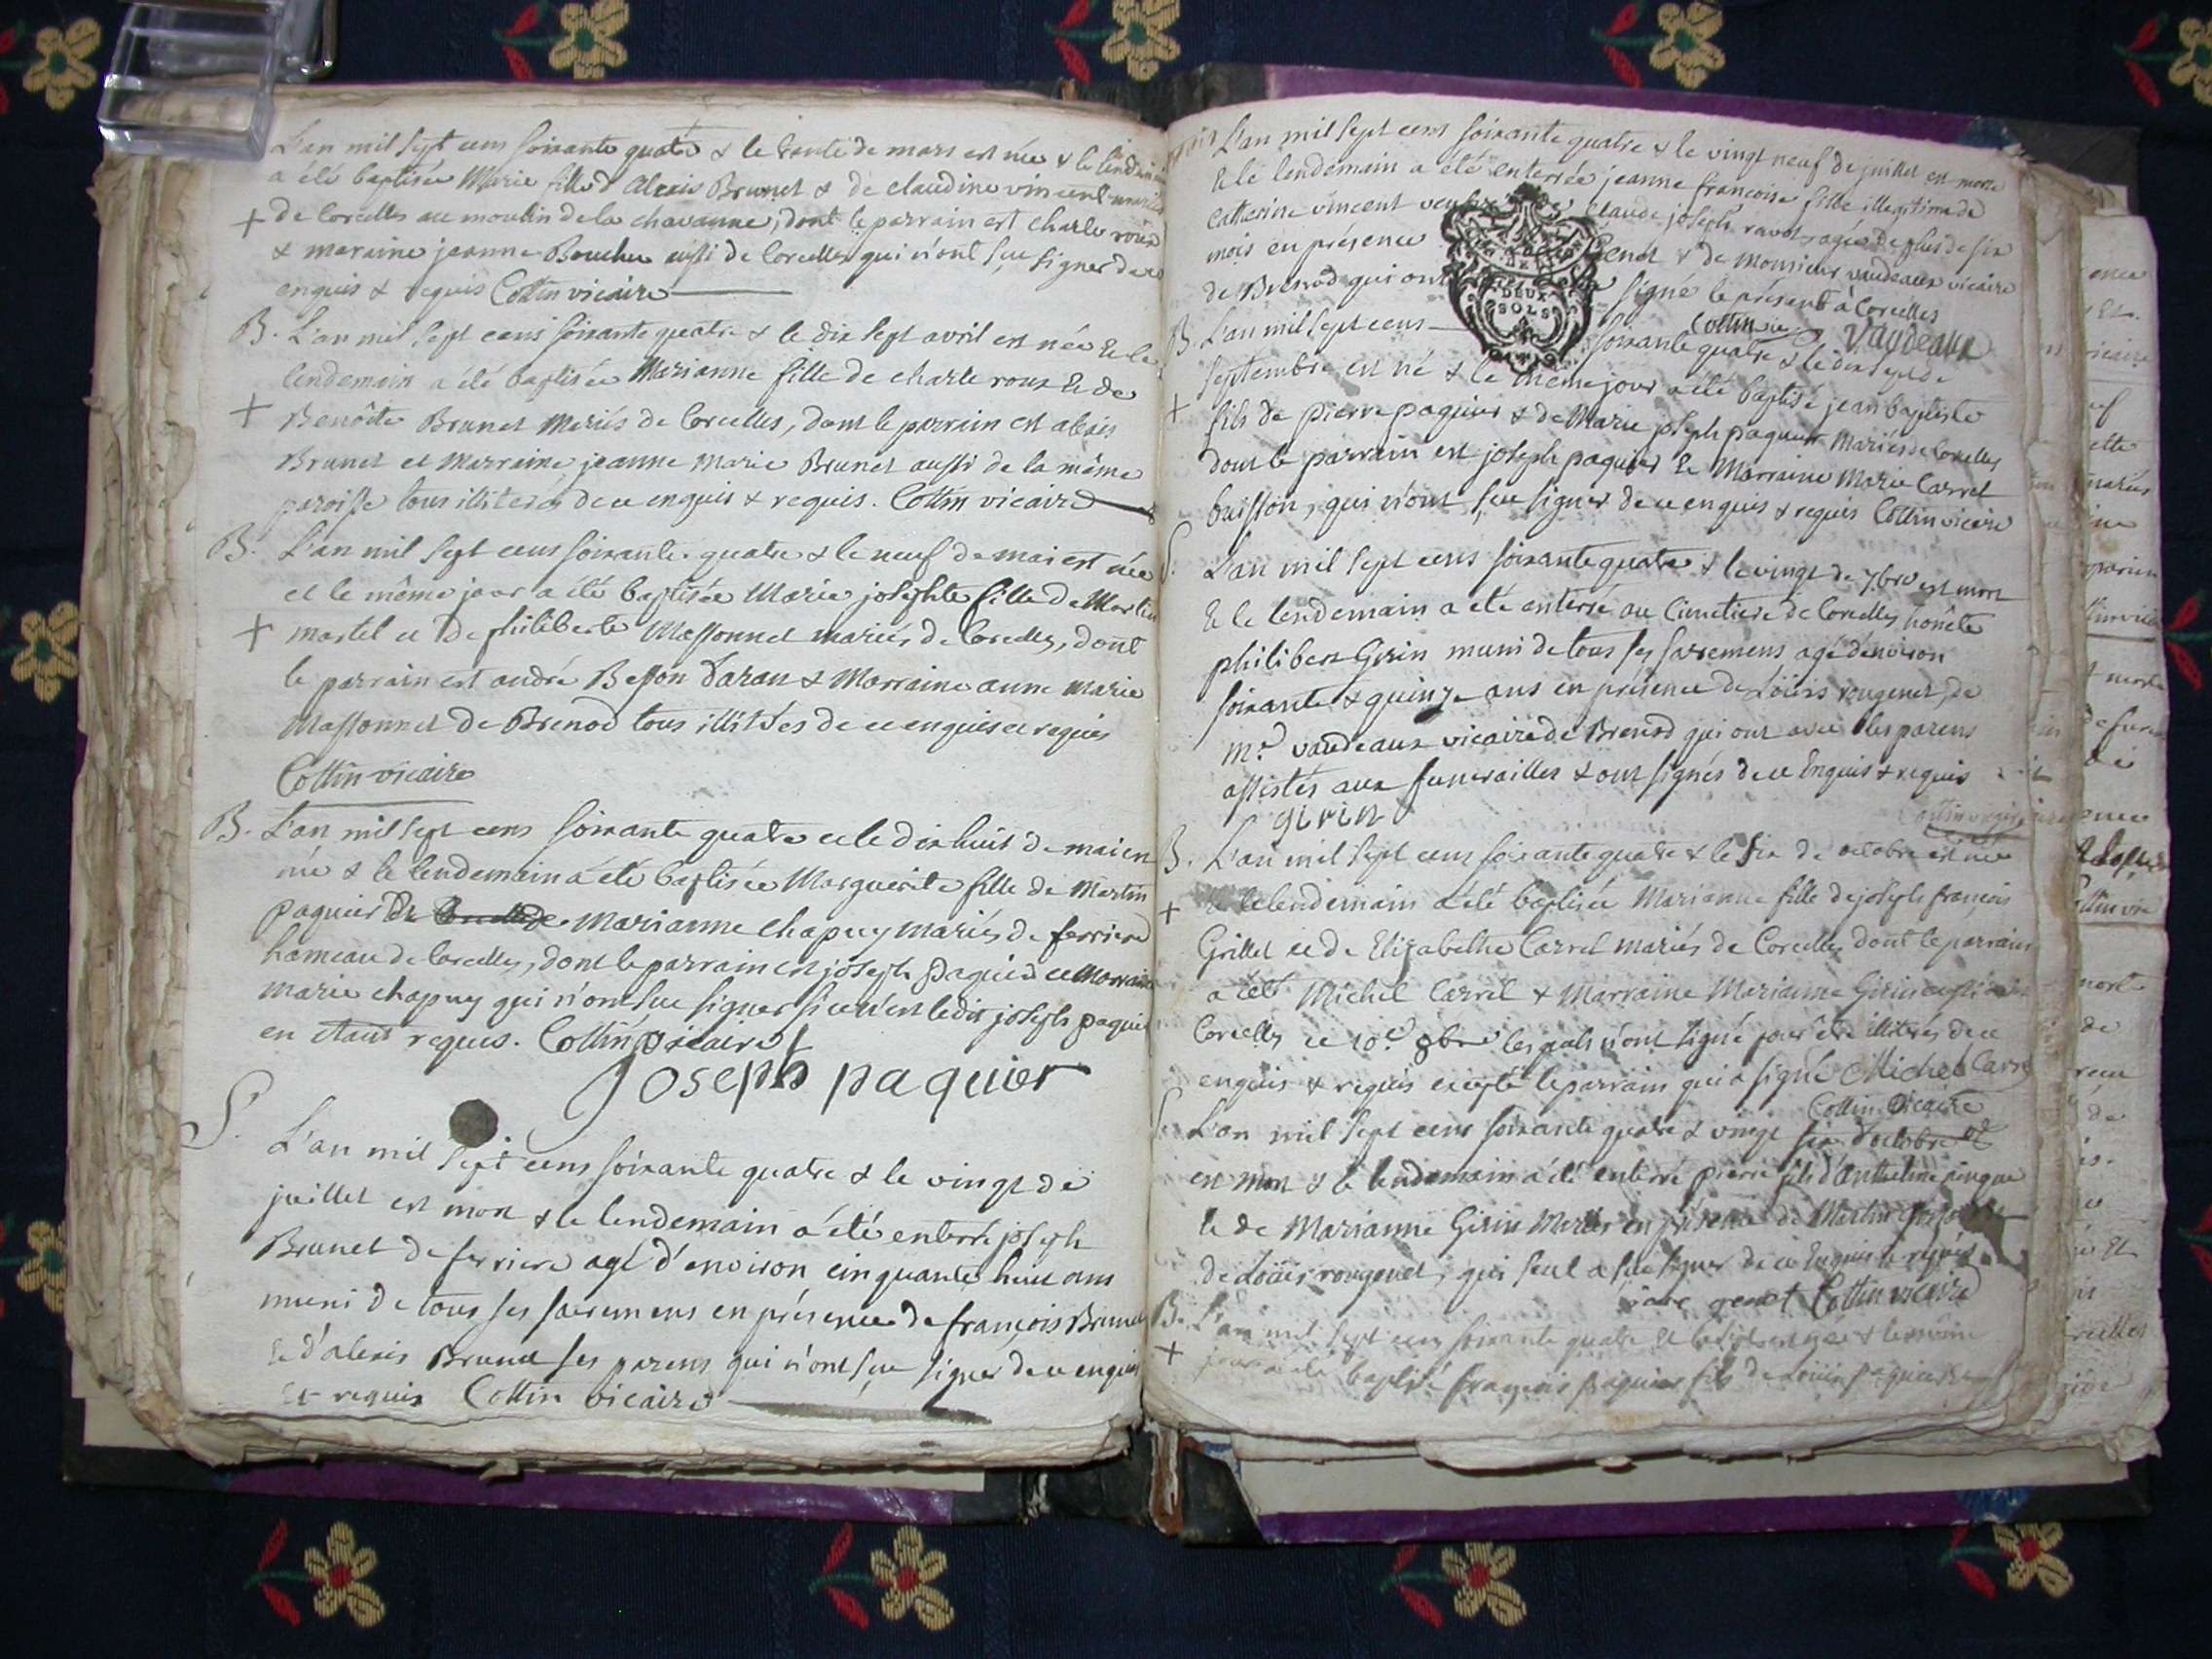 L'an mil sept cens soixante quatre & le trente de mars est née & le lendemain
a été baptisée Marie fille d'Alexis Brunet & de claudine vincent mariés
+ de Corcelles au moulin de la chavanne, dont le parrain est charle roux
& maraine jeanne Bouchu aussi de Corcelles qui n'ont sçu signer de ce
enquis & requis Cottin vicaire
B. L'an mil sept cens soixante quatre & le dix sept avril est née & le
lendemain a été baptisée Marianne fille de charle roux & de
+ Benoîte Brunet Mariés de Corcelles, dont le parrain est alexis
Brunet et Marraine jeanne Marie Brunet aussi de la même
paroisse tous illiterés de ce enquis & requis. Cottin vicaire
B. L'an mil sept cens soixante quatre & le neuf de mai est née
et le même jour a été baptisée Marie josephte fille de Martin
+ martel et de philiberte Massonnet mariés de Corcelles, dont
le parrain est andré Besson d'aran & Marraine anne Marie
Massonnet de Brenod tous illitérés de ce enquis et requis
Cottin vicaire
B. L'an mil sept cens soixante quatre et le dix huit de mai est
née & le lendemain a été baptisée Marguerite fille de Martin
paquier de Marianne chapuy mariés de ferriere
hameau de Corcelles, dont le parrain est joseph paquier et Marraine
marie chapuy qui n'ont sçu signer si ce n'est ledit joseph paquier
en étant requis. Cottin vicaire
Joseph paquier
S. L'an mil sept cens soixante quatre & le vingt de
juillet est mort & le lendemain a été enterré joseph
Brunet de ferriere agé d'environ cinquante huit ans
muni de tous ses sacremens en présence de françois Brunet
& d'alexis Brunet ses parens qui n'ont sçu signer de ce enquis
et requis Cottin vicaire
L'an mil sept cens soixante quatre & le vingt neuf de juillet est morte
& le lendemain a été enterrée jeanne françoise fille illegitime de
Catherine vincent veuve de Claude joseph ravot agée de plus de six
mois en présence Genet & de monsieur vaudeaux vicaire
de Brenod qui ont signé le présent à Corcelles
DEUX
SOLS
Cottin vic Vaudeaux
B. L'an mil sept cens soixante quatre & le dix sept de
septembre est né & le même jour a été baptisé jean baptiste
+ fils de pierre paquier & de Marie joseph paquier Mariés de Corcelles
dont le parrain est joseph paquier & Marraine Marie Carrel
buisson, qui n'ont sçu signer de ce enquis & requis Cottin vicaire
S. L'an mil sept cens soixante quatre & le vingt de 7bre est mort
& le lendemain a été enterré au Cimetiere de Corcelles honête
philibert Girin muni de tous ses sacremens agé d'environ
soixante & quinze ans en présence de Loüis rougenet, de
mr. vaudeaux vicaire de Brenod qui ont avec les parens
assistés aux funerailles & ont signés de ce Enquis & requis
girin Cottin vicaire
B. L'an mil sept cens soixante quatre & le six de octobre est née
+ & le lendemain a été baptisée Marianne fille de joseph françois
Grillet et de Elizabethe Carrel mariés de Corcelles dont le parrain
a été Michel Carrel & Marraine Marianne Girin aussi de
Corcelles ce 10e 8bre lesquels n'ont signé pour être illiterés de ce
enquis & requis excepté le parrain qui a signé Michel Carrel
Cottin vicaire
S. L'an mil sept cens soixante quatre & vingt six d'octobre
est mort & le lendemain a été enterré pierre fils d'Anthelme
& de Marianne Girin Mariés en présence de Martin
de Loüis rougenet, qui seul a sçu signer de ce Enquis & requis
genet Cottin vicaire
B. L'an mil sept cens soixante quatre & est né & le même
+ jour a été baptisé françois paquier fils de Loüis paquier